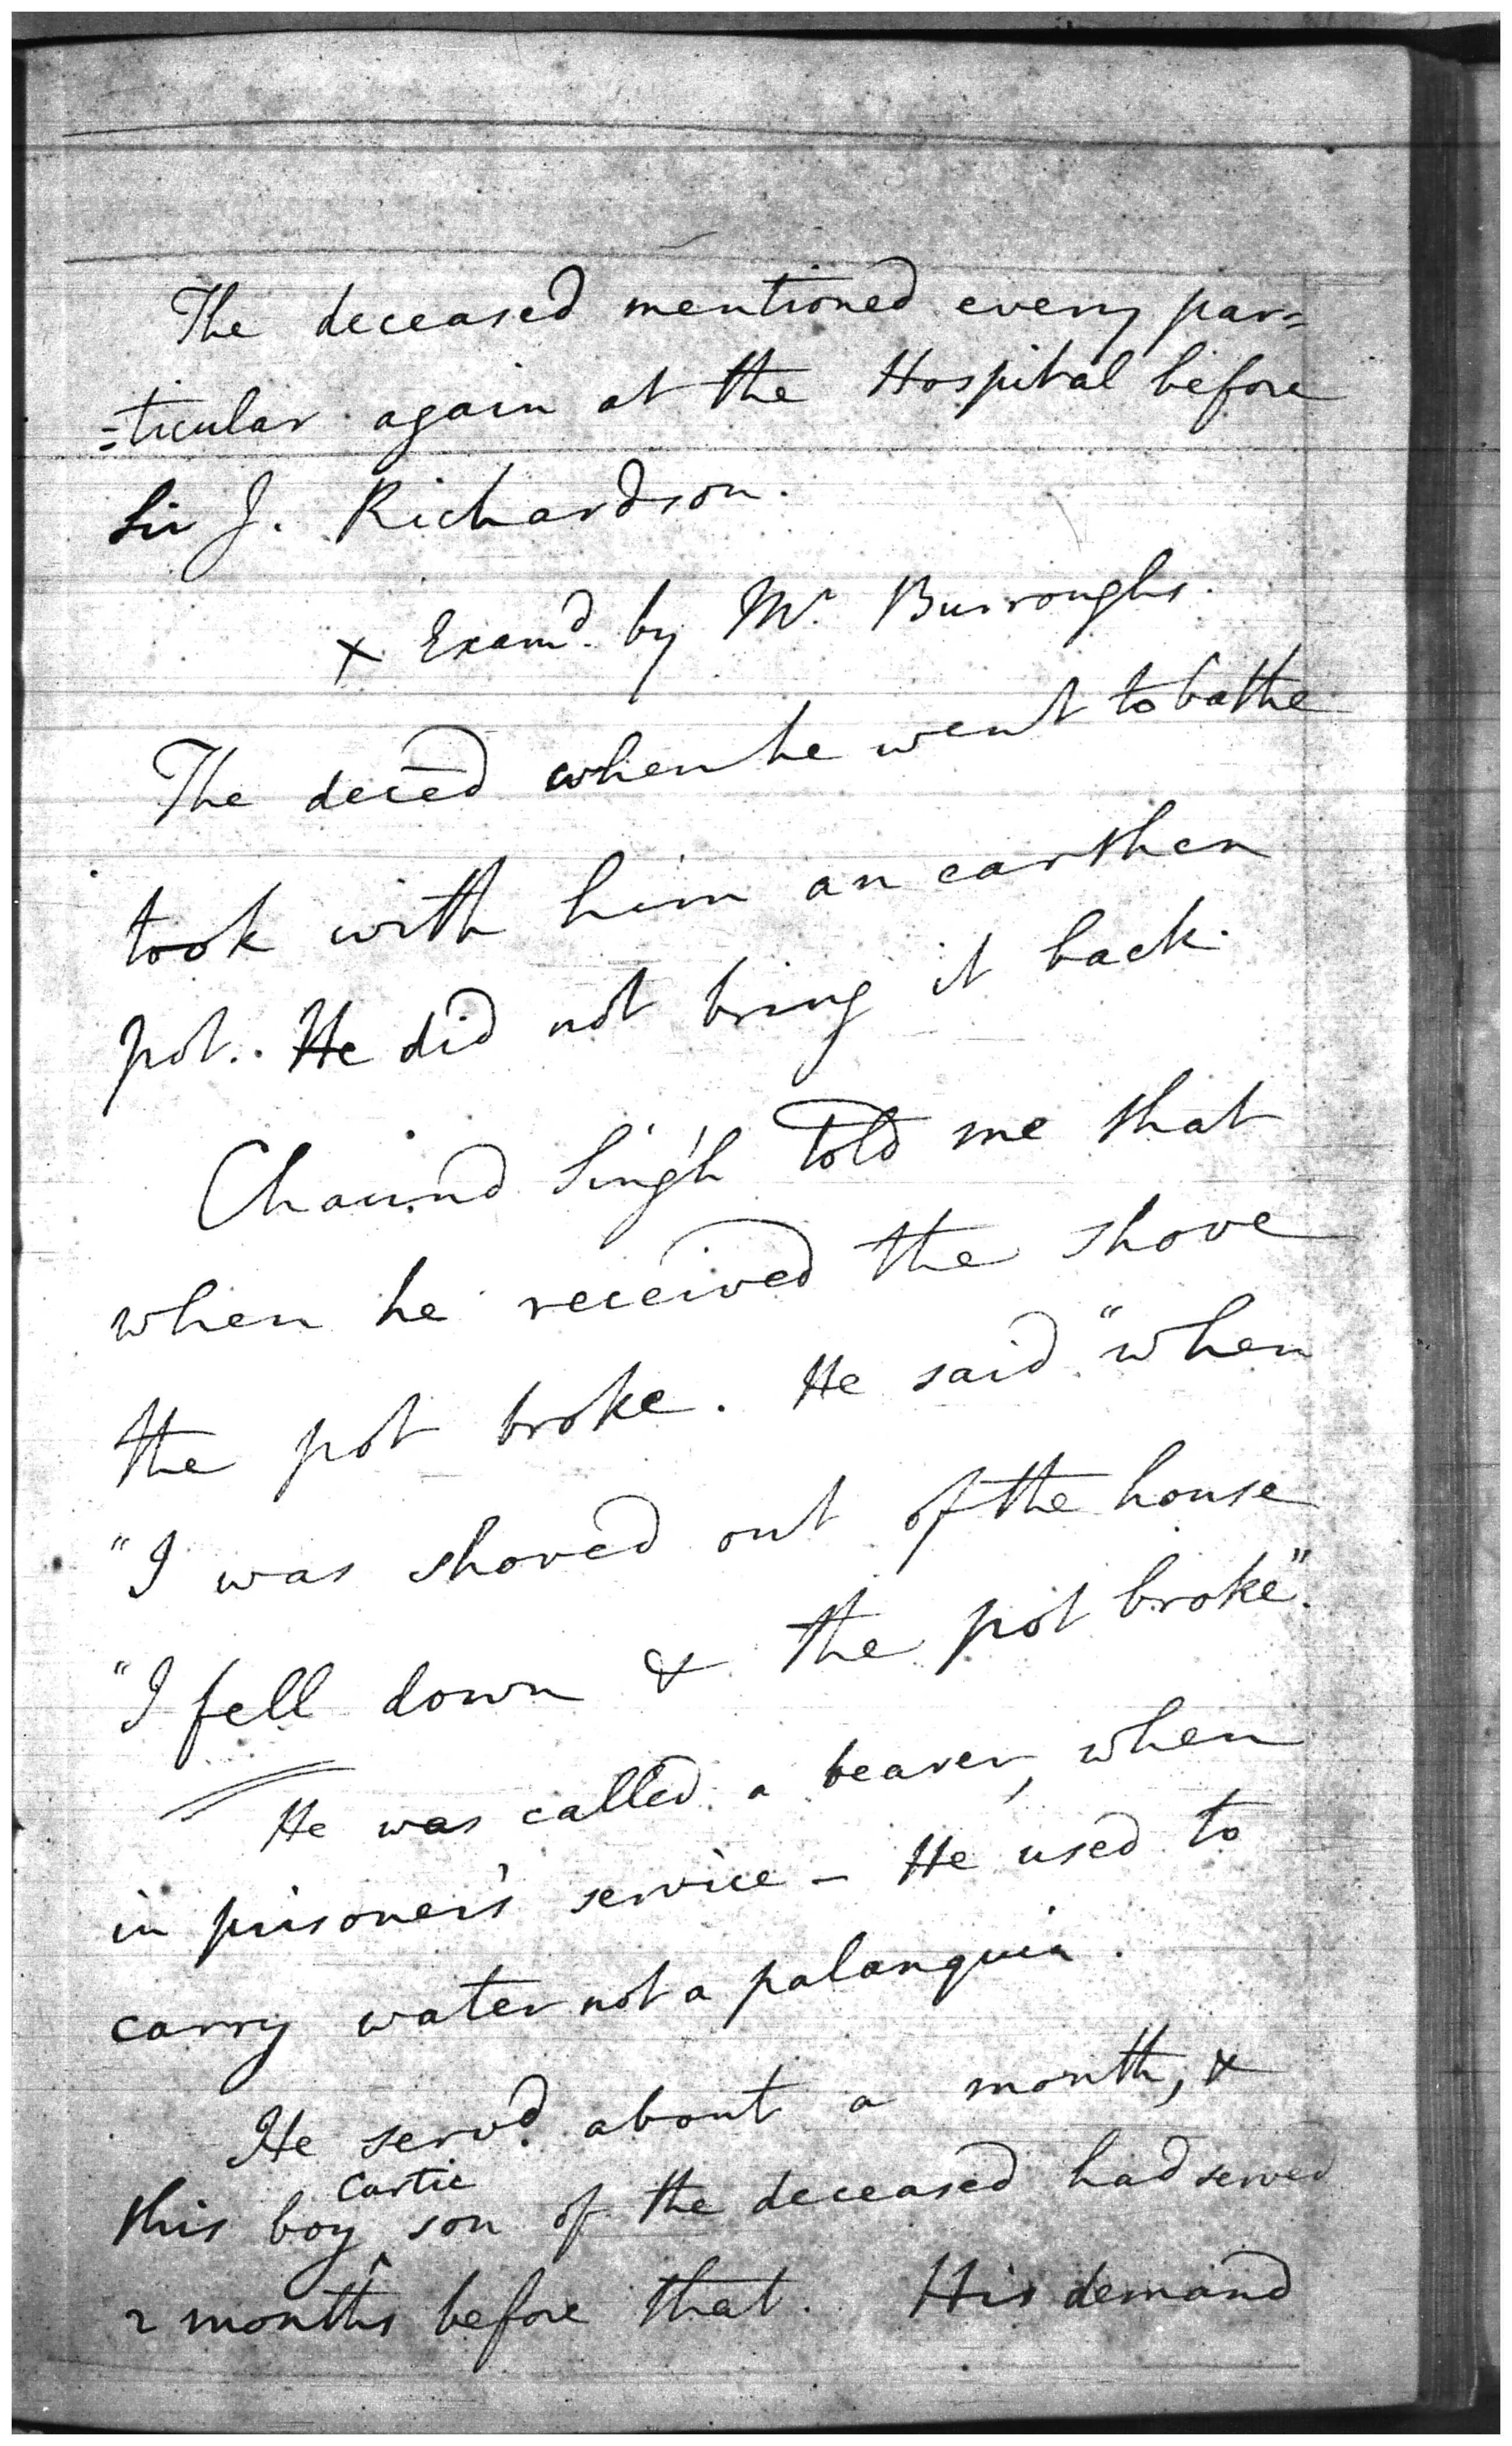 The deceased mentioned every par=
=ticular again at the Hospital before
Sir J. Richardson.
x Examd. by Mr. Burroughs.
The deced when he went to bathe
took with him an earthen
pot.. He did not bring it back.
Chaund Singh told me that
when he received the shove
the pot broke. He said "when
"I was shoved out of the house
"I fell down & the pot broke".
He was called a bearer, when
in prisoner's service - He used to
carry water not a palanquin.
He servd. about a month, &
this boy ^ Cartic son of the deceased had served
2 months before that. His demand